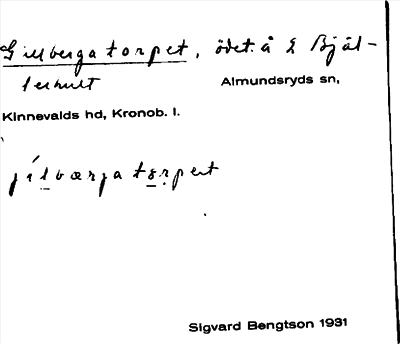 Gillbergatorpet, ödet. å L Bjäl-
lerhult Almundsryds sn,
Kinnevalds hd, Kronob. l.
jílbærjatorpet
Sigvard Bengtson 1931